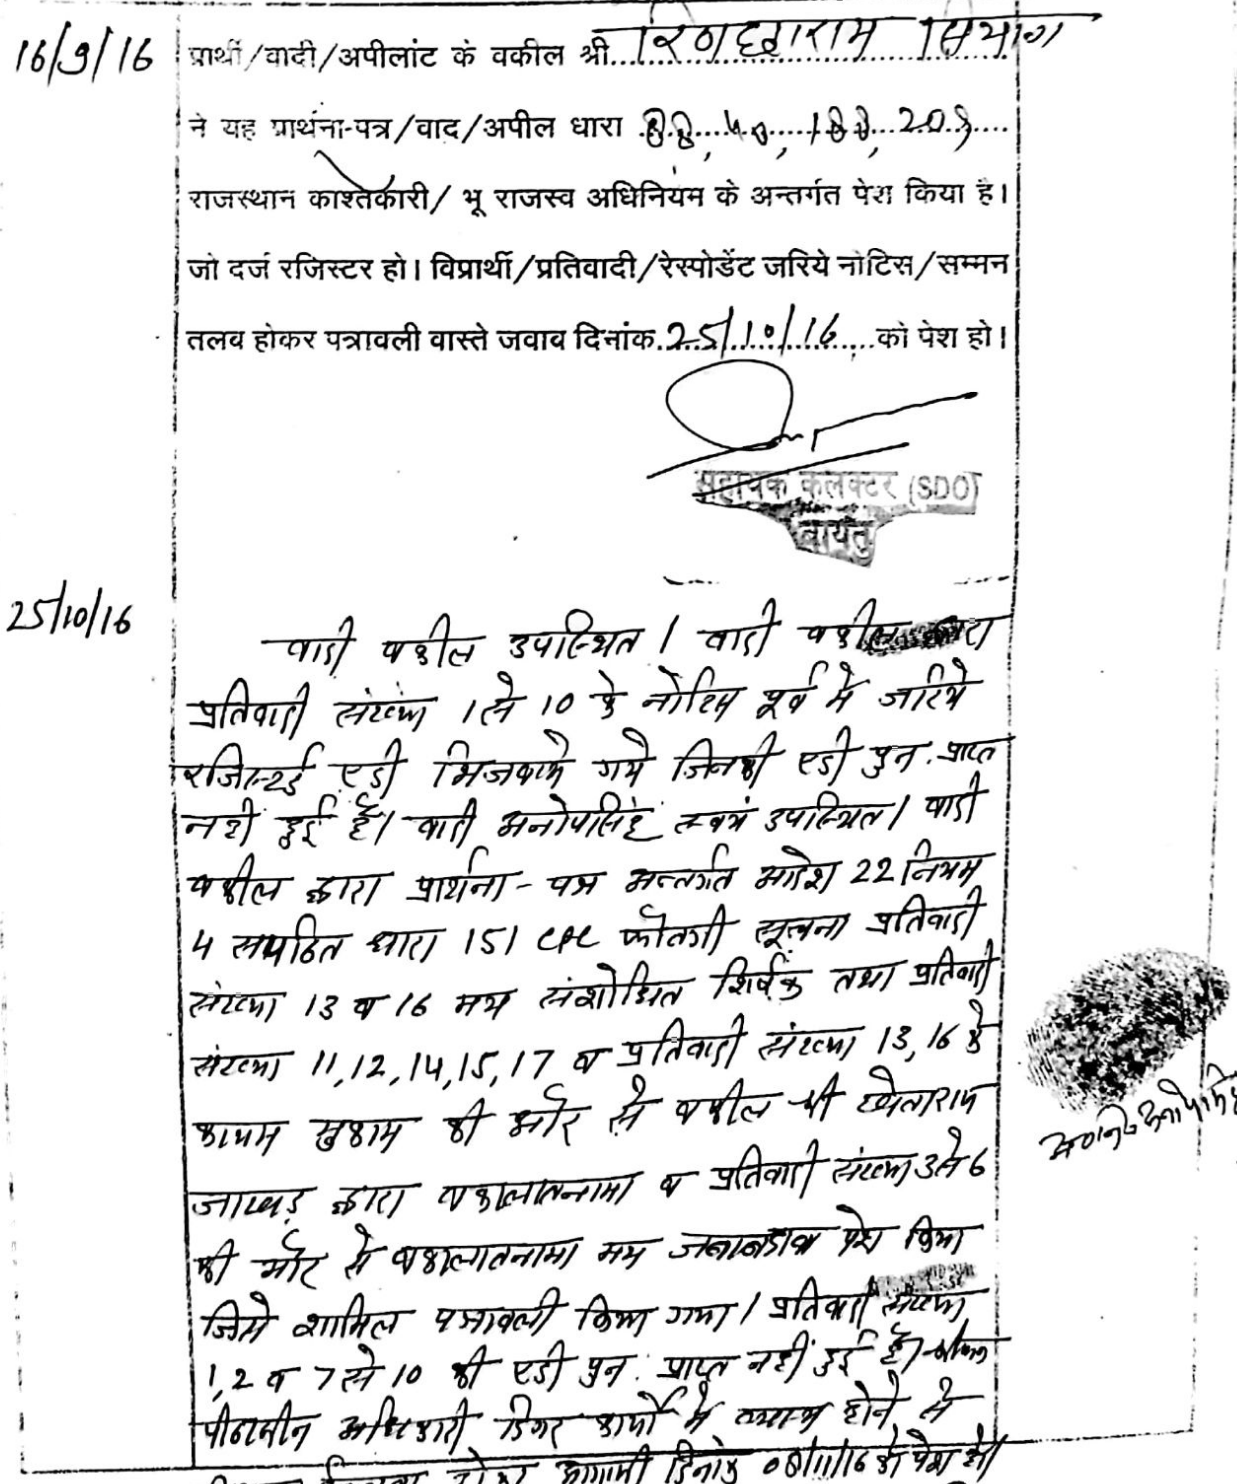 16/9/16 प्रार्थी/वादी/अपीलांट के वकील श्री सियाग
ने यह प्रार्थना-पत्र/वाद/अपील धारा 88, 40, 188, 209
राजस्थान काश्तकारी/ भू राजस्व अधिनियम के अन्तर्गत पेश किया है।
जो दर्ज रजिस्टर हो। विप्रार्थी/प्रतिवादी/रेस्पोडेंट जरिये नोटिस/सम्मन
तलब होकर पत्रावली वास्ते जवाब दिनांक 25/10/16 को पेश हो।
सहायक कलक्टर (SDO)
बायतु
25/10/16
वादी वकील उपस्थित। वादी वकील द्वारा
प्रतिवादी संख्या 1 से 10 के नोटिस पूर्व में जरिये
रजिस्टर्ड एडी भिजवाये गये जिनकी एडी पुन: प्राप्त
नही हुई है। वादी अनोपसिंह स्वयं उपस्थित। वादी
वकील द्वारा प्रार्थना-पत्र अन्तर्गत आदेश 22 नियम
4 सपठित धारा 151 CPC फौतगी सूचना प्रतिवादी
संख्या 13 व 16 मय संशोधित शिर्षक तथा प्रतिवादी
संख्या 11,12,14,15,17 व प्रतिवादी संख्या 13,16 के
कायम मुकाम की और से वकील श्री खेताराम
जाखड़ द्वारा वकालातनामा व प्रतिवादी संख्या 3 से 6
की और से वकालातनामा मय पेश किया
जिसे शामिल पत्रावली किया गया। प्रतिवादी संख्या
1,2 व 7 से 10 की एडी पुन: प्राप्त नहीं हुई है।
पीठासीन अधिकारी डिगर कार्यो में व्यस्त होने से
आगामी दिनांक 08/11/16 को पेश हो।